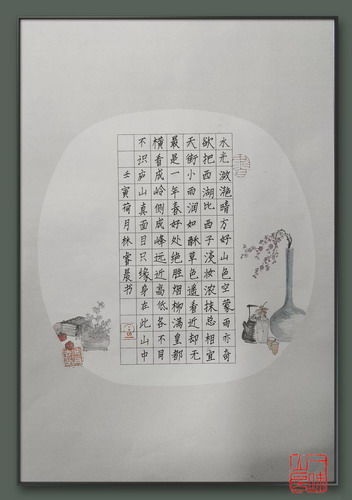 水光潋滟晴方好山色空蒙雨亦奇
欲把西湖比西子淡妆浓抹总相宜
天街小雨润如酥草色遥看近却无
最是一年春好处绝胜烟柳满皇都
横看成岭侧成峰远近高低各不同
不识庐山真面目只缘身在此山中
壬寅荷月林睿晨书